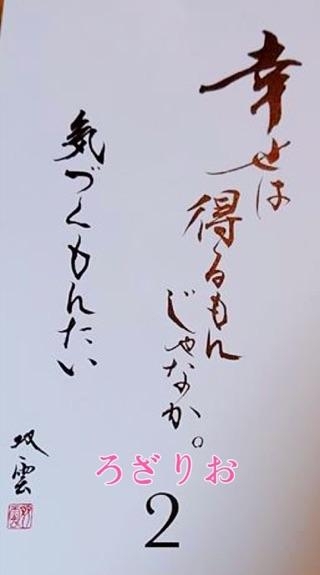 幸せは
得るもん
じゃなか。
気づくもんたい
双雲
ろざりお
2